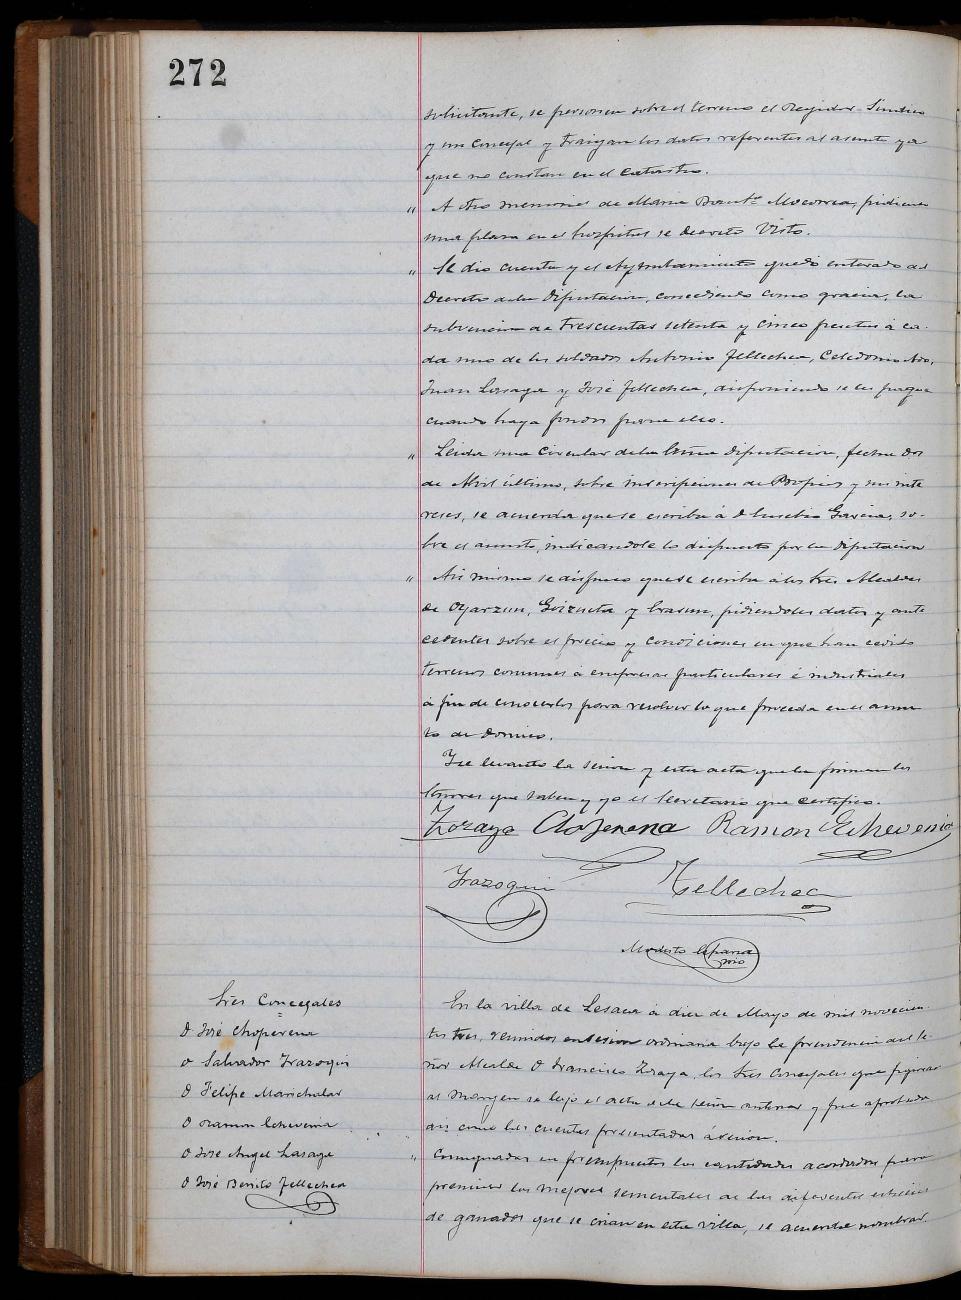 272
solicitante, se personen sobre el terreno el Regidor Sindico
y un Concejal y traigan los datos referentes al asunto ya
que no constan en el Catastro.
" A otro memorial de Maria Bauta Mocorrea, pidiendo
una plaza en el hospital se decretó Visto.
" Se dio cuenta y el Ayuntamiento quedó enterado del
Decreto de la Diputacion, concediendo como gracia, la
subvencion de trescientas setenta y cinco pesetas á ca-
da uno de los soldados Antonio Tellechea, Celedonio
Juan Lasaga y José Tellechea, disponiendo se les pague
cuando haya fondos para ello.
" Leida una Circular de la Excma Diputacion, fecha dos
de Abril último, sobre inscripciones de Propios y sus inte
reses, se acuerda que se escriba á D Eusebio Garcia, so-
bre el asunto, indicandole lo dispuesto por la Diputacion
" Asi mismo se dispuso que se escriba á los tres Alcaldes
de Oyarzun, Goizueta y Erasun, pidiendoles datos y ante
cedentes sobre el precio y condiciones en que han cedido
terrenos comunes á empresas particulares é industriales
á fin de conocerlos para resolver lo que proceda en el asun
to de
Se levantó la sesion y esta acta que la firman los
Señores que saben y yo el Secretario que certifico.
Zoraya Choperena Ramon Echeverria
Irazoqui Tellechea
Modesto
Sres Concejales
D José Choperena
D Salvador Irazoqui
D Felipe Marichalar
D Ramon Echeverria
D José Angel Lasaga
D José Benito Tellechea
En la villa de Lesaca á diez de Mayo de mil novecien-
tos tres, reunidos en sesion ordinaria bajo la presidencia del Se-
ñor Alcalde D Francisco Zoraya, los Sres Concejales que figuran
al margen se leyó el acta de la sesion anterior y fue aprobada
asi como las cuentas presentadas á sesion.
" Consignadas en presupuestos las cantidades acordadas para
premiar los mejores sementales de las diferentes especies
de ganados que se crian en esta villa, se acuerda nombrar